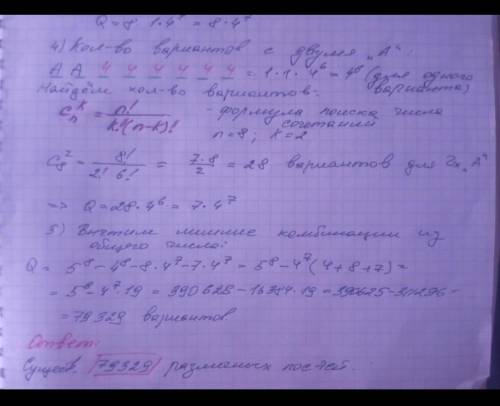 Q = 8 · 1 · 4⁷ = 8 · 4⁷
4) Кол-во вариантов с двумя „А“:
А А 4 4 4 4 4 4 = 1·1·4⁶ = 4⁶ (для одного варианта)
Найдём кол-во вариантов:
C_n^k = n! / k!(n-k)! - формула поиска числа сочетаний
n=8; k=2
C_8^2 = 8! / 2! 6! = 7·8 / 2 = 28 вариантов для 2х „А“
=> Q = 28·4⁶ = 7·4⁷
5) Вычтем лишние комбинации из
общего числа:
Q = 5⁸ - 4⁸ - 8·4⁷ - 7·4⁷ = 5⁸ - 4⁷(4+8+7) =
= 5⁸ - 4⁷·19 = 390625 - 16384·19 = 390625 - 311296 =
= 79329 вариантов
Ответ:
Существ. 79329 различных